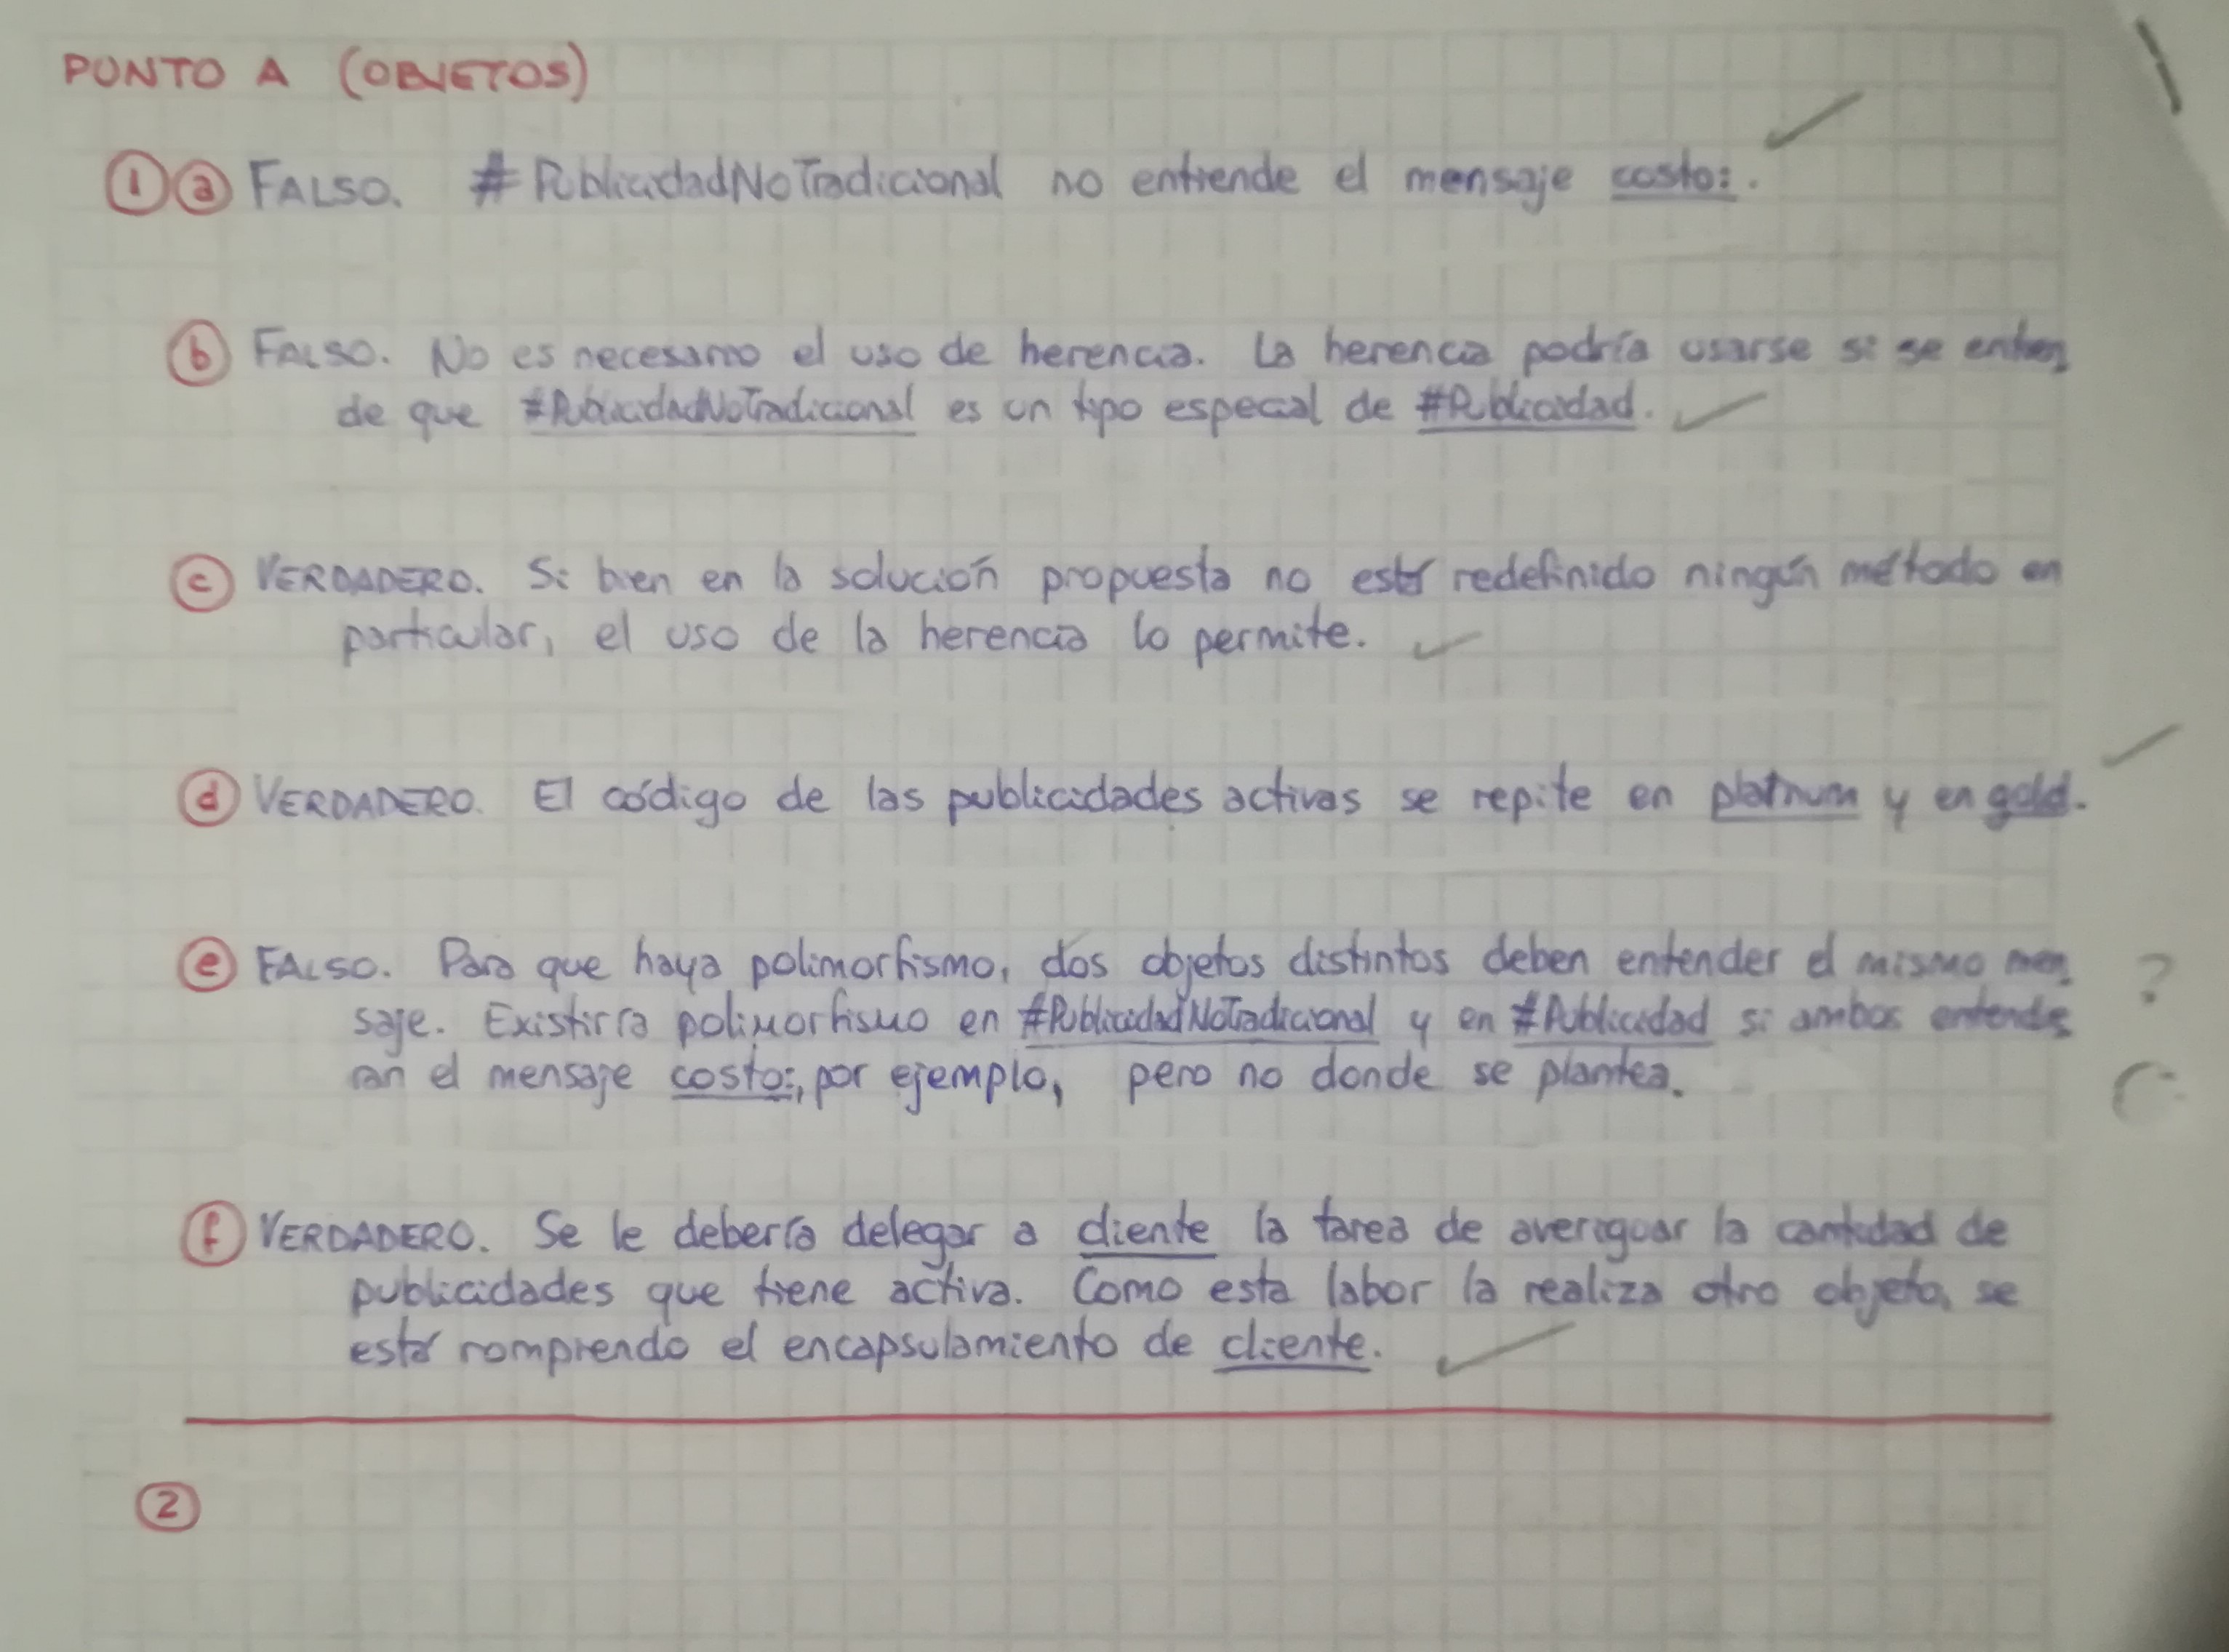 PUNTO A (OBJETOS)
1 a FALSO. #PublicidadNoTradicional no entiende el mensaje costo:.
b FALSO. No es necesario el uso de herencia. La herencia podría usarse si se entien
de que #PublicidadNoTradicional es un tipo especial de #Publicidad.
c VERDADERO. Si bien en la solución propuesta no está redefinido ningún método en
particular, el uso de la herencia lo permite.
d VERDADERO. El código de las publicidades activas se repite en platinum y en gold.
e FALSO. Para que haya polimorfismo, dos objetos distintos deben entender el mismo men
saje. Existiría polimorfismo en #PublicidadNoTradicional y en #Publicidad si ambos entendie
ran el mensaje costo:, por ejemplo, pero no donde se plantea.
?
f VERDADERO. Se le debería delegar a cliente la tarea de averiguar la cantidad de
publicidades que tiene activa. Como esta labor la realiza otro objeto, se
está rompiendo el encapsulamiento de cliente.
2